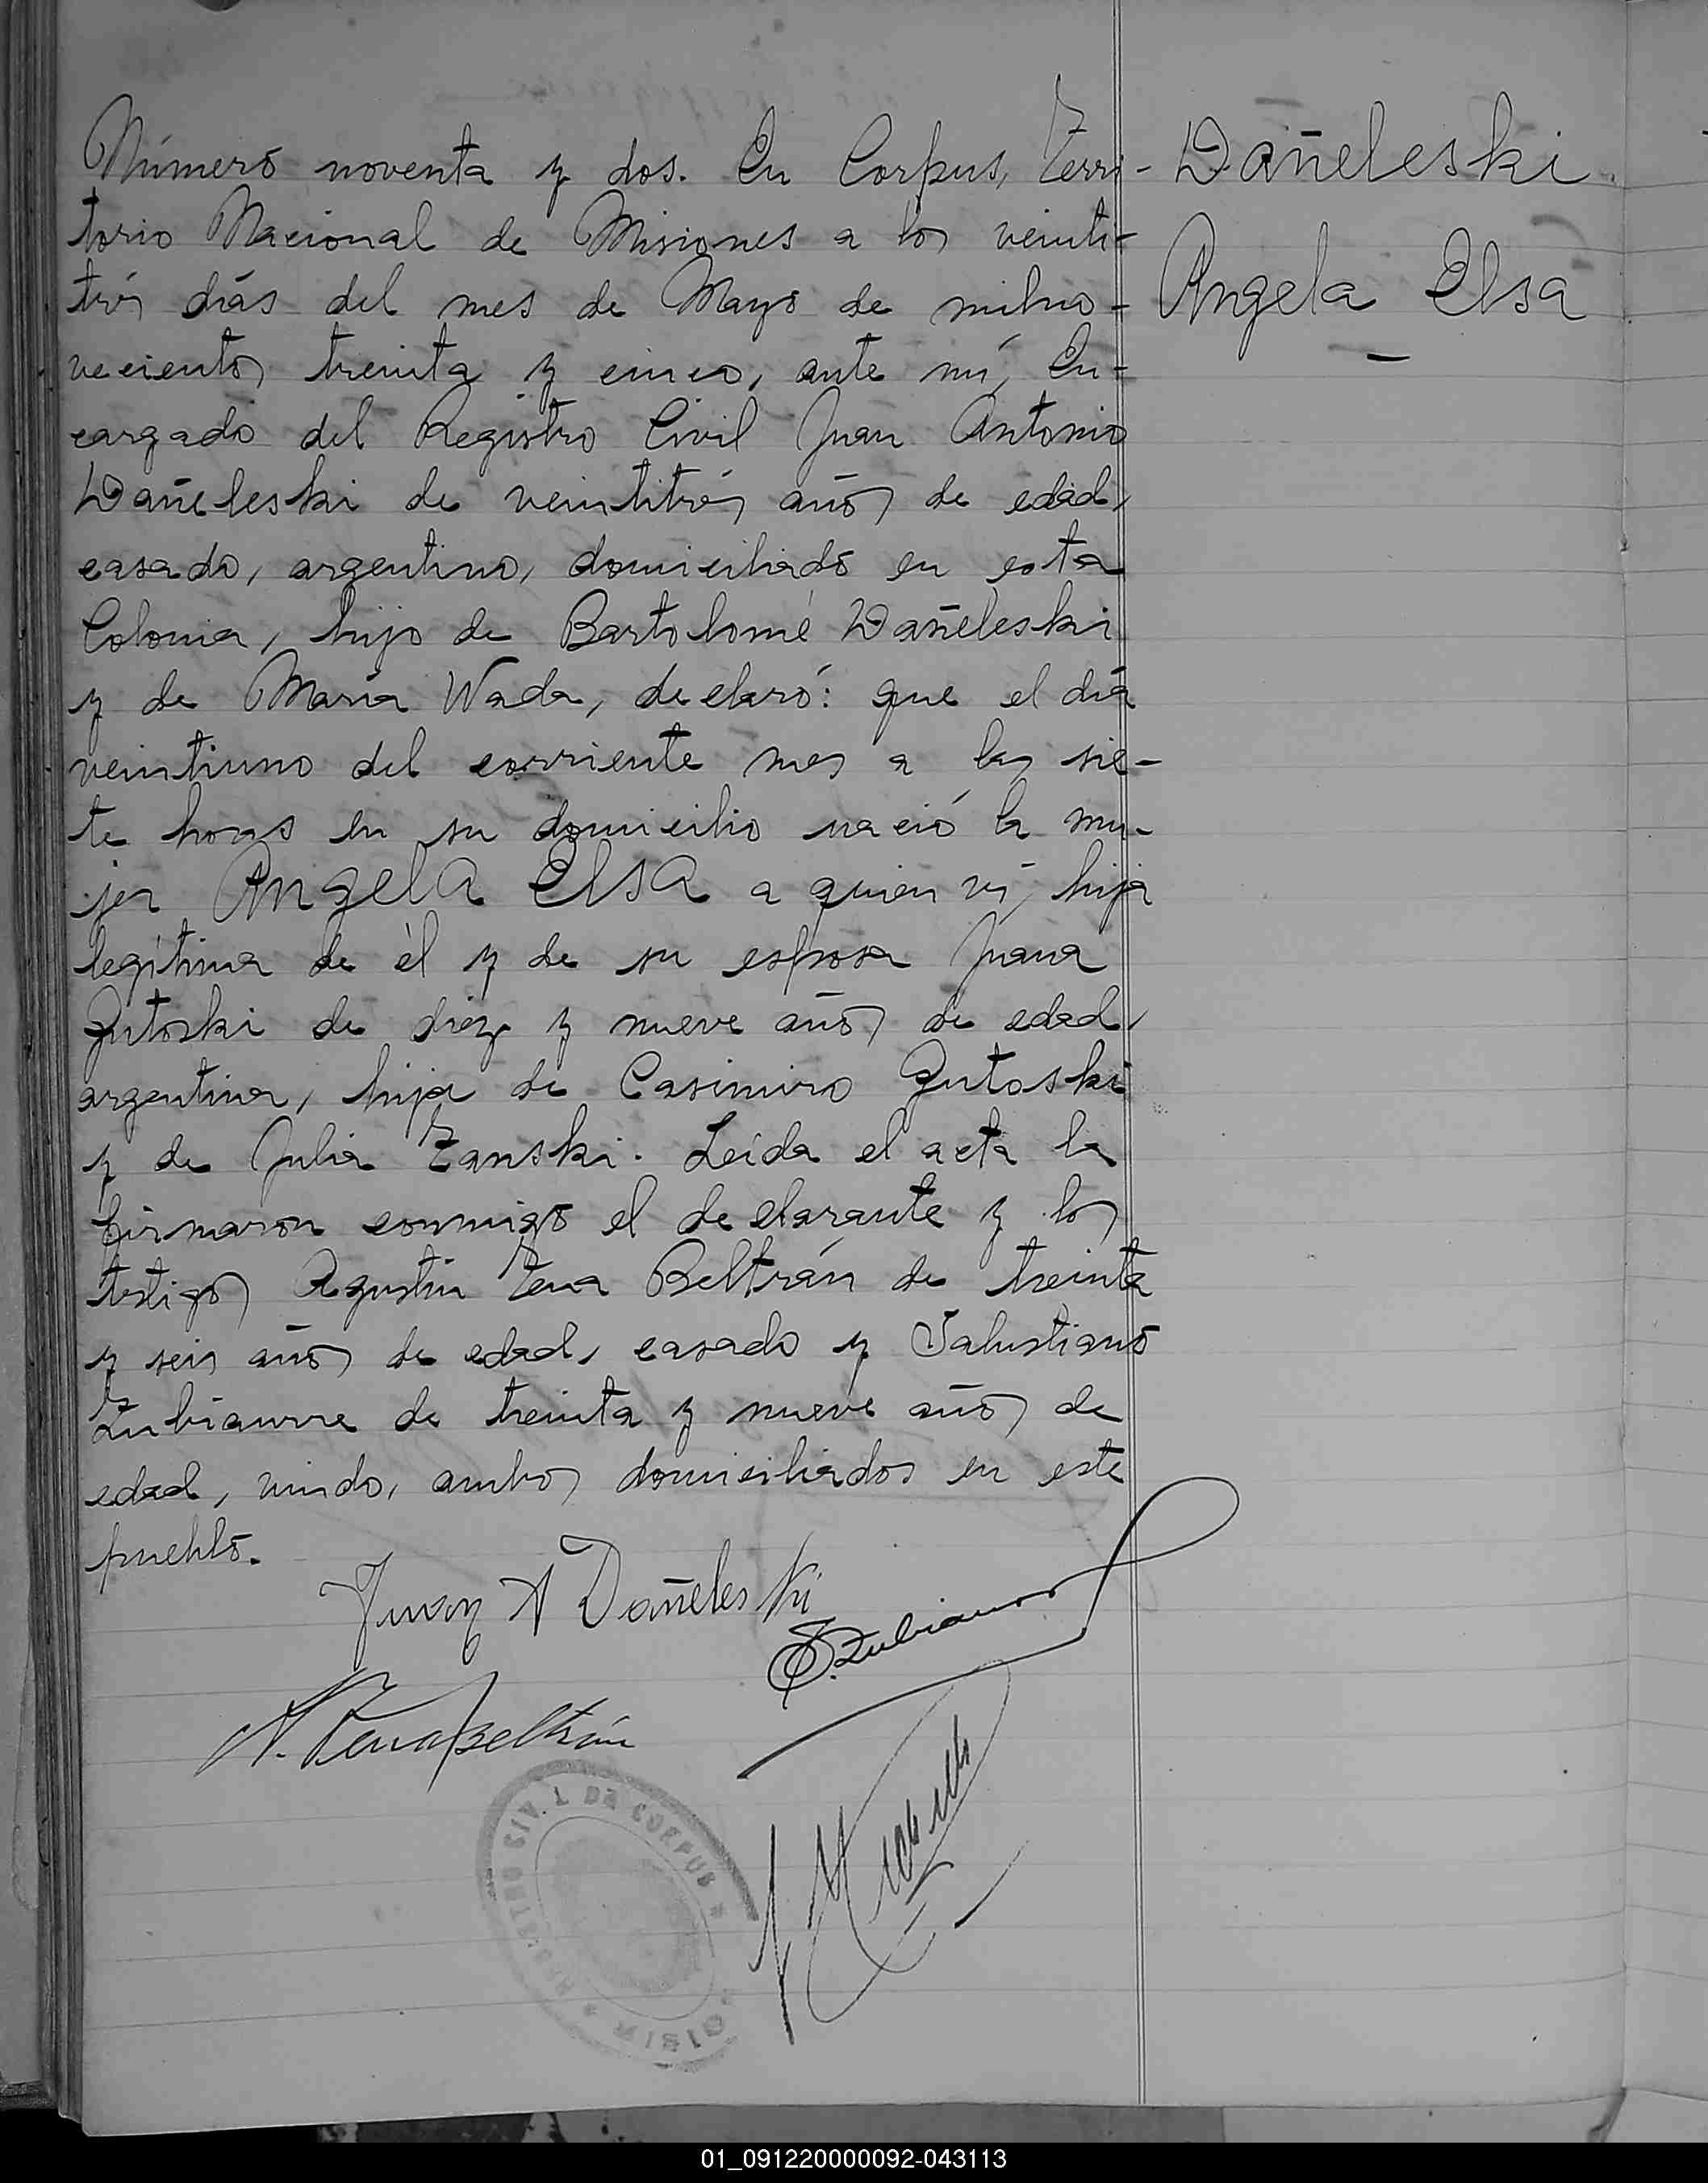 Número noventa y dos. En Corpus, Terri-
torio Nacional de Misiones a los veinti-
trés días del mes de Mayo de milno-
vecientos treinta y cinco, ante mí, En-
cargado del Registro Civil Juan Antonio
Dañeleski de veintitrés años de edad,
casado, argentino, domiciliado en esta
Colonia, hijo de Bartolomé Dañeleski
y de María Wada, declaró: que el día
veintiuno del corriente mes a las sie-
te horas en su domicilio nació la mu-
jer Angela Elsa a quien ví, hija
legítima de él y de su esposa Juana
Gutoski de diez y nueve años de edad,
argentina, hija de Casimiro Gutoski
y de Julia Zanski. Leída el acta la
firmaron conmigo el declarante y los
testigos Agustín Tena Beltrán de treinta
y seis años de edad, casado y Salustiano
Zubiaurre de treinta y nueve años de
edad, viudo, ambos domiciliados en este
pueblo.
Dañeleski
Angela Elsa
Juan A Dañeleski
S. Zubiaurre
A. Tena Beltrán
REGISTRO CIVIL DE CORPUS
01_091220000092-043113